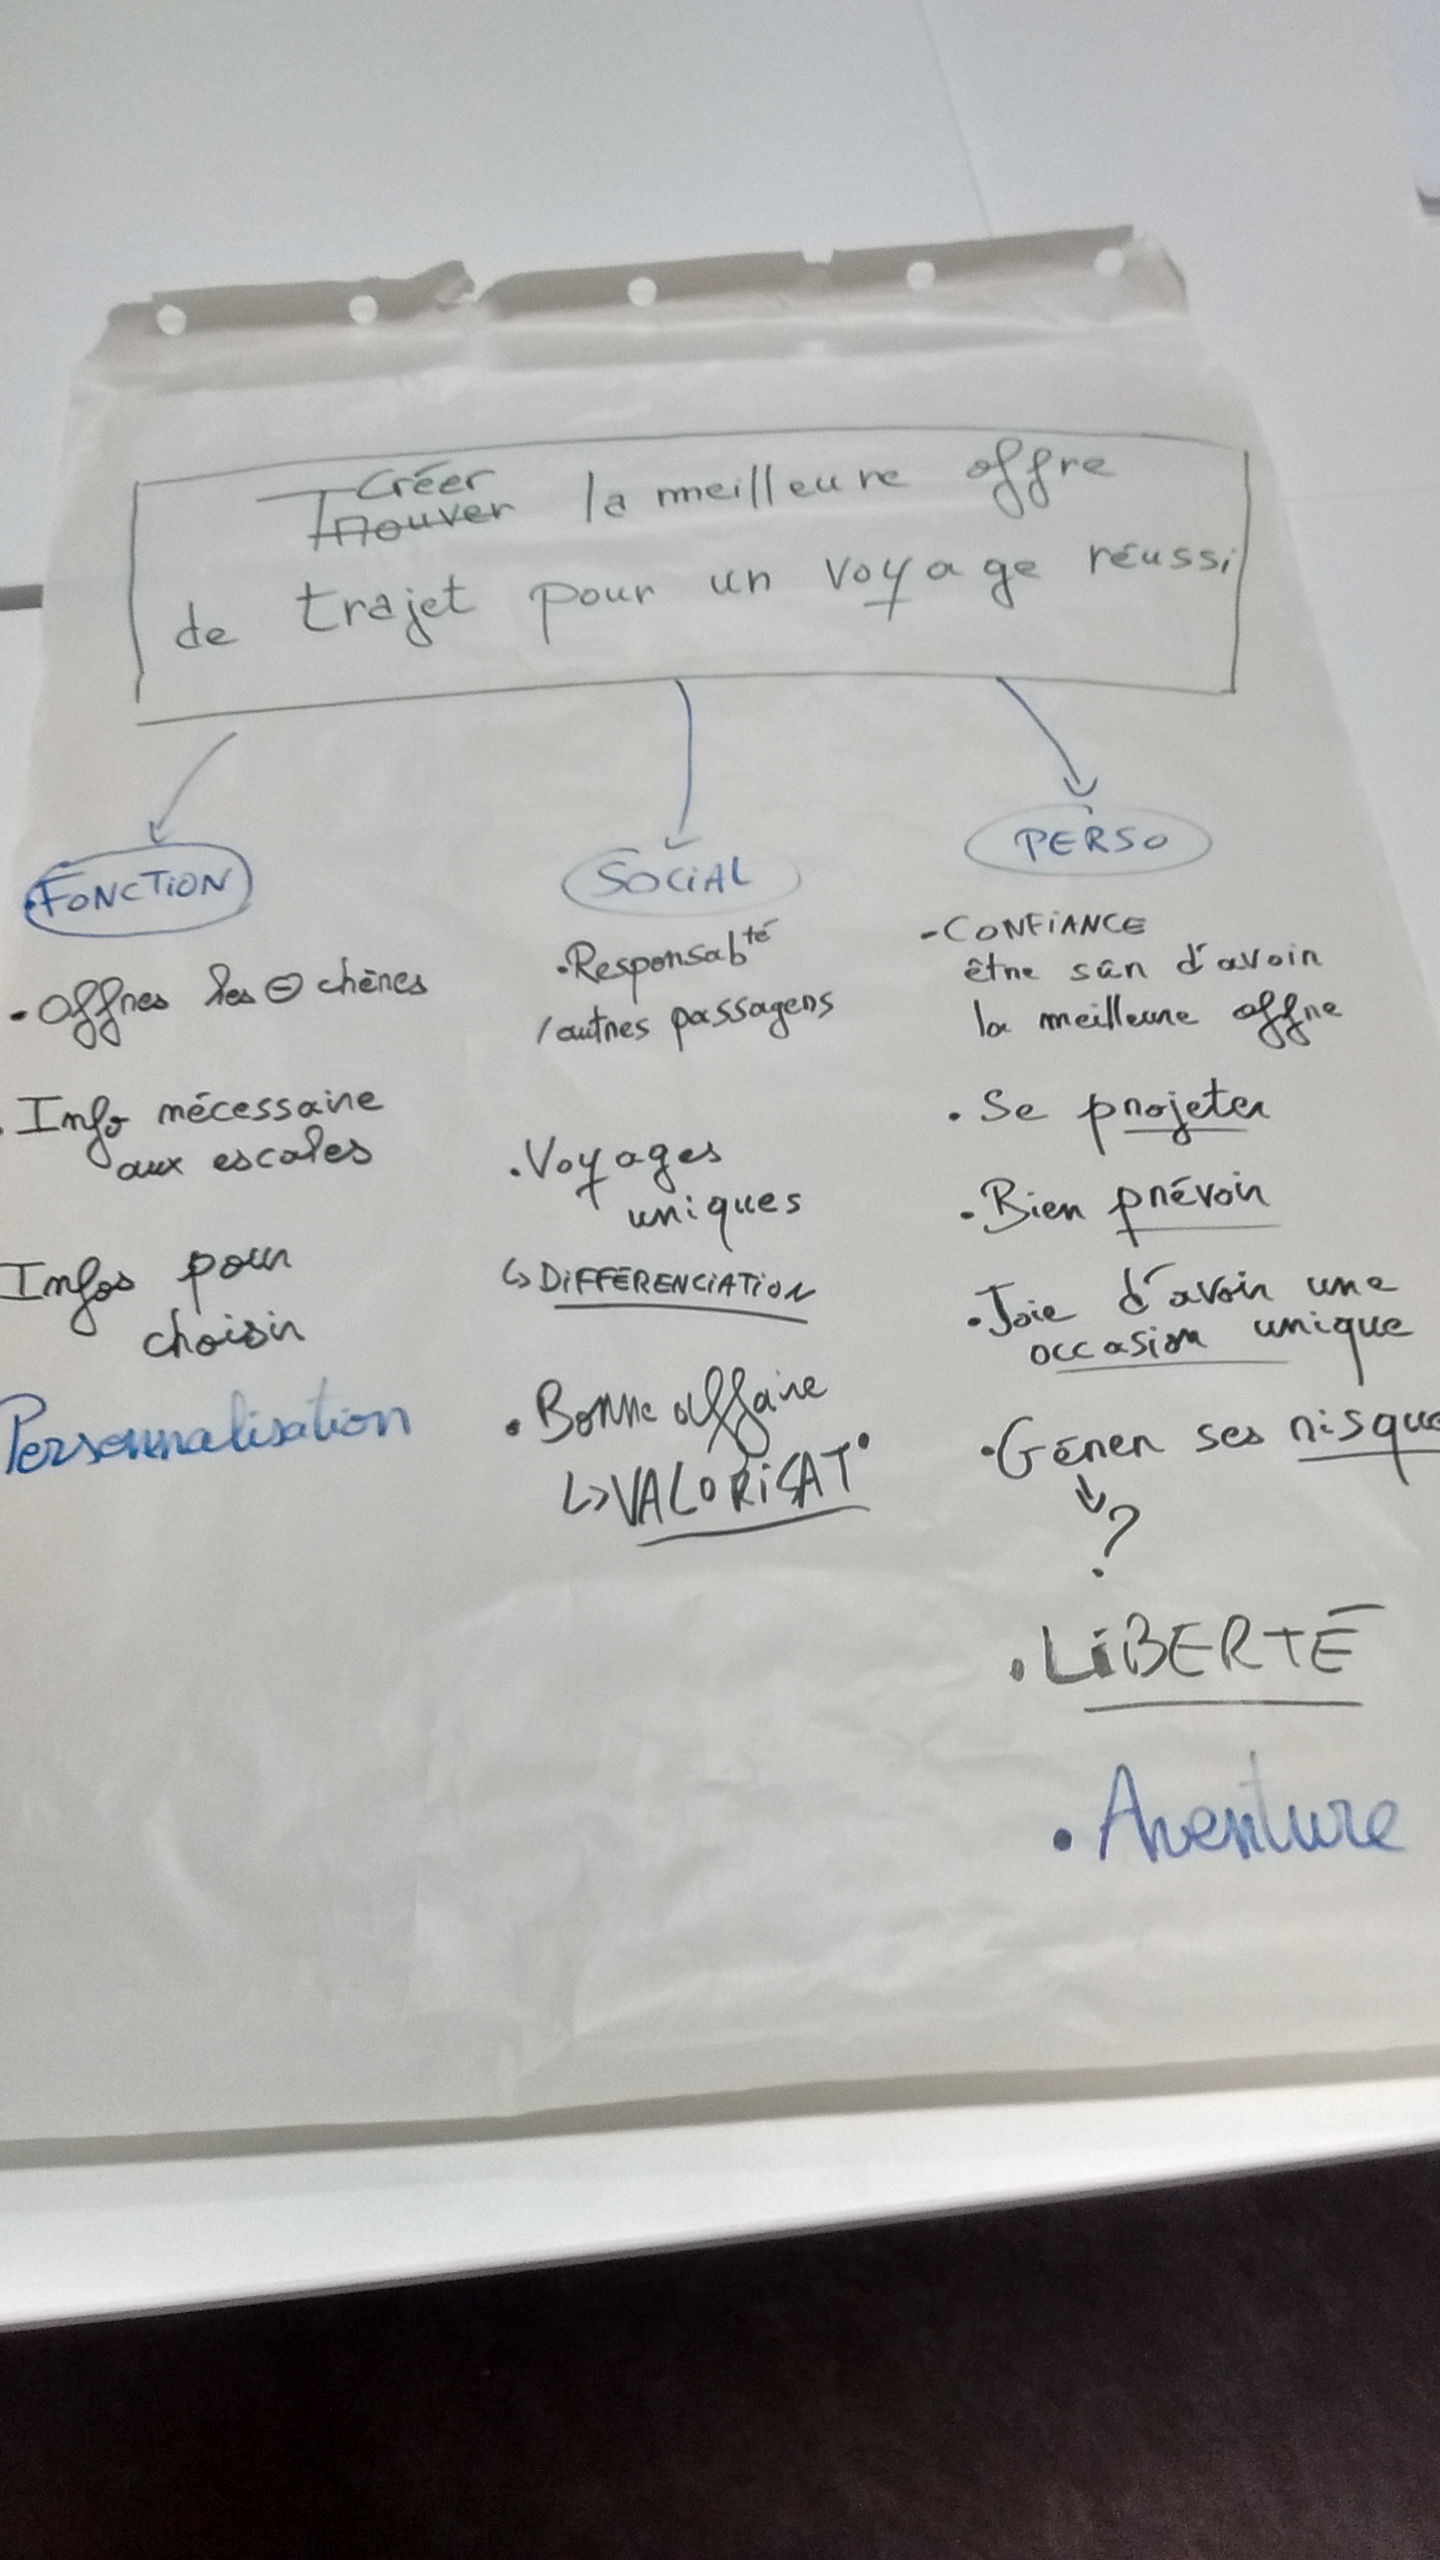 Créer
Trouver la meilleure offre
de trajet pour un voyage réussi
FONCTION
• Offres les ⊖ chères
• Info nécessaire
aux escales
Infos pour
choisir
Personnalisation
SOCIAL
• Responsabté
/autres passagers
• Voyages
uniques
↳ DIFFÉRENCIATION
• Bonne affaire
↳ VALORISAT°
PERSO
- CONFIANCE
être sûr d'avoir
la meilleure offre
• Se projeter
• Bien prévoir
• Joie d'avoir une
occasion unique
• Gérer ses risque
↓
?
• LIBERTÉ
• Aventure